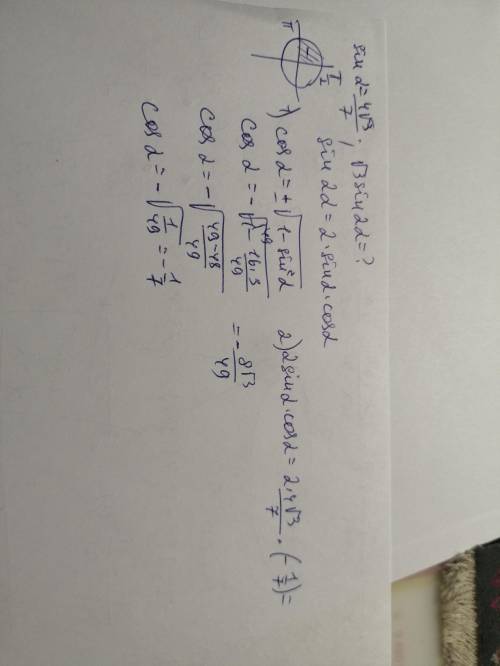 sin α = 4√3/7; √3 sin 2α = ?
sin 2α = 2·sin α·cos α
π/2
π
1) cos α = ±√(1 - sin²α)
cos α = -√(1 - 16·3/49)
cos α = -√((49-48)/49)
cos α = -√(1/49) = -1/7
2) 2 sin α·cos α = 2·4√3/7 · (-1/7) =
= -8√3/49